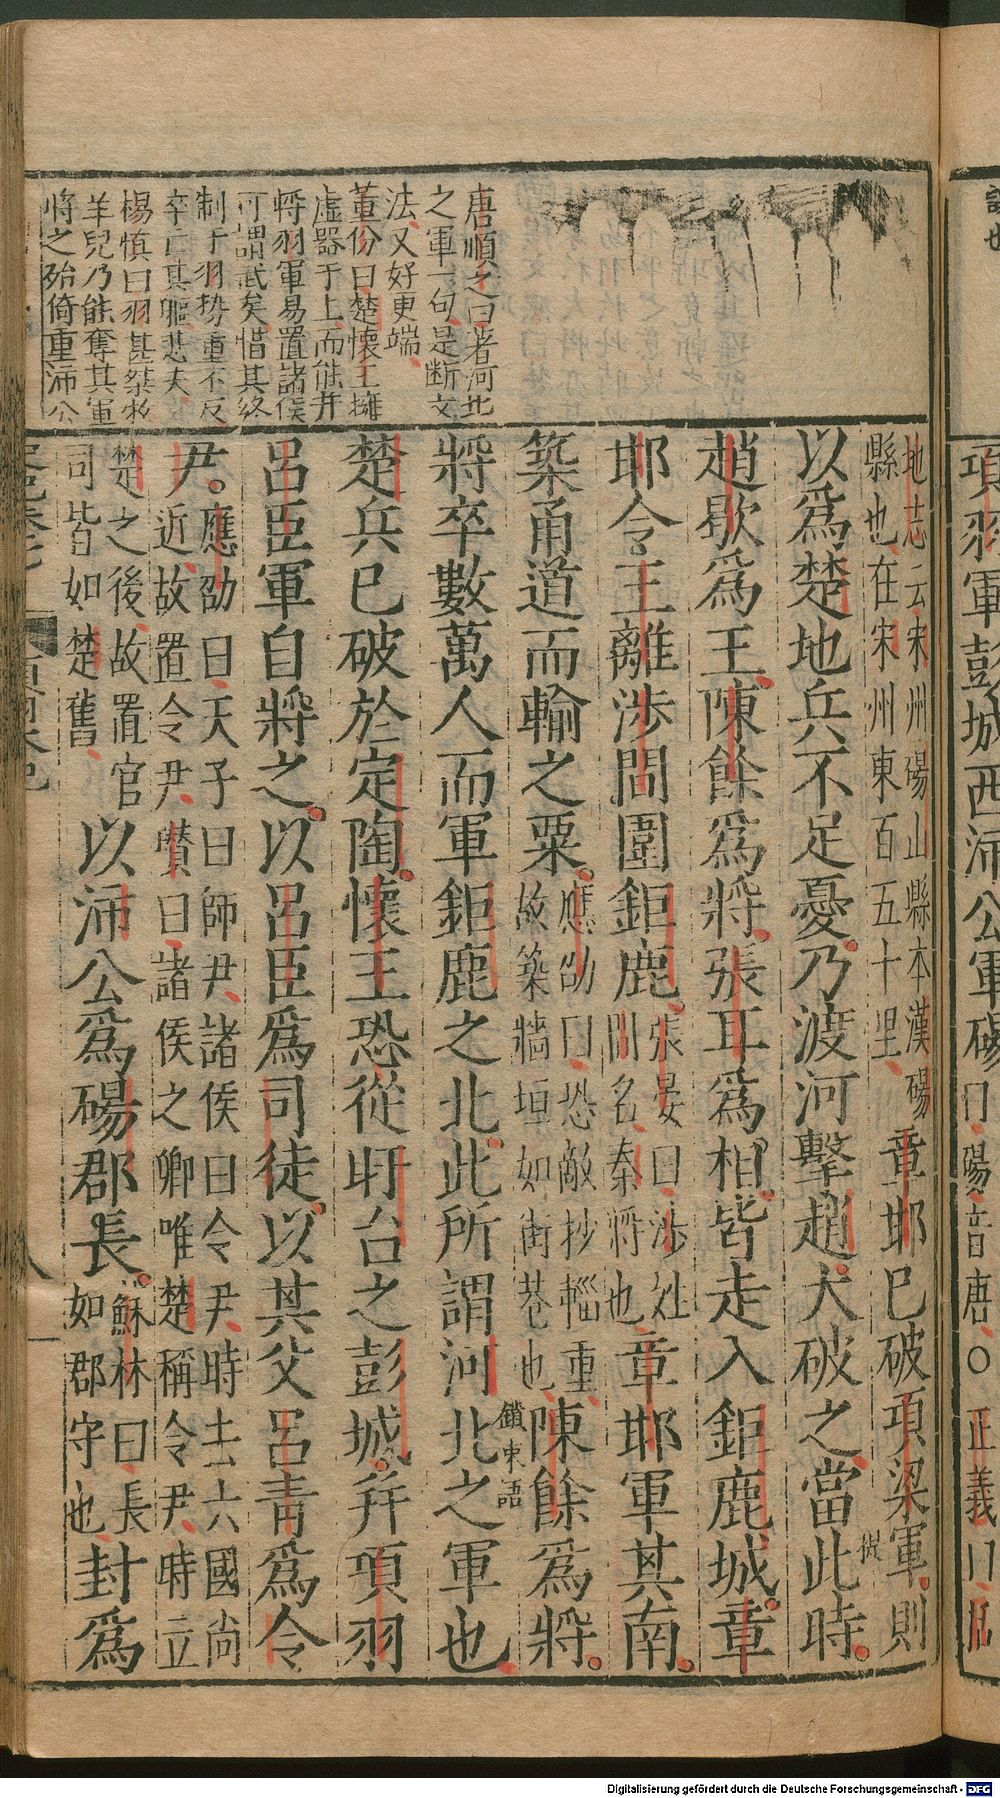 項羽軍彭城西沛公軍碭
地志云宋州碭山縣本漢碭
縣也在宋州東百五十里
章邯已破項梁軍則
以爲楚地兵不足憂乃渡河擊趙大破之當此時
趙歇爲王陳餘爲將張耳爲相皆走入鉅鹿城章
邯令王離涉間圍鉅鹿
張晏曰涉姓
間名秦將也
章邯軍其南
築甬道而輸之粟
應劭曰恐敵抄輜重
故築牆垣如街巷也
陳餘爲將
將卒數萬人而軍鉅鹿之北此所謂河北之軍也
鎖束語
楚兵已破於定陶懷王恐從盱台之彭城幷項羽
呂臣軍自將之以呂臣爲司徒以其父呂青爲令
尹
應劭曰天子曰師尹諸侯曰令尹時去六國尚
近故置令尹瓚曰諸侯之卿唯楚稱令尹時立
楚之後故置官
司皆如楚舊
以沛公爲碭郡長
蘇林曰長
如郡守也
封爲
唐順之曰著河北
之軍一句是斷文
法又好更端
董份曰楚懷王擁
虛器于上而能幷
將羽軍易置諸侯
可謂武矣惜其終
制于羽勢重不反
卒亡其軀悲夫
楊慎曰羽甚桀
羊兒乃能奪其軍
將之殆倚重沛公
Digitalisierung gefördert durch die Deutsche Forschungsgemeinschaft - DFG